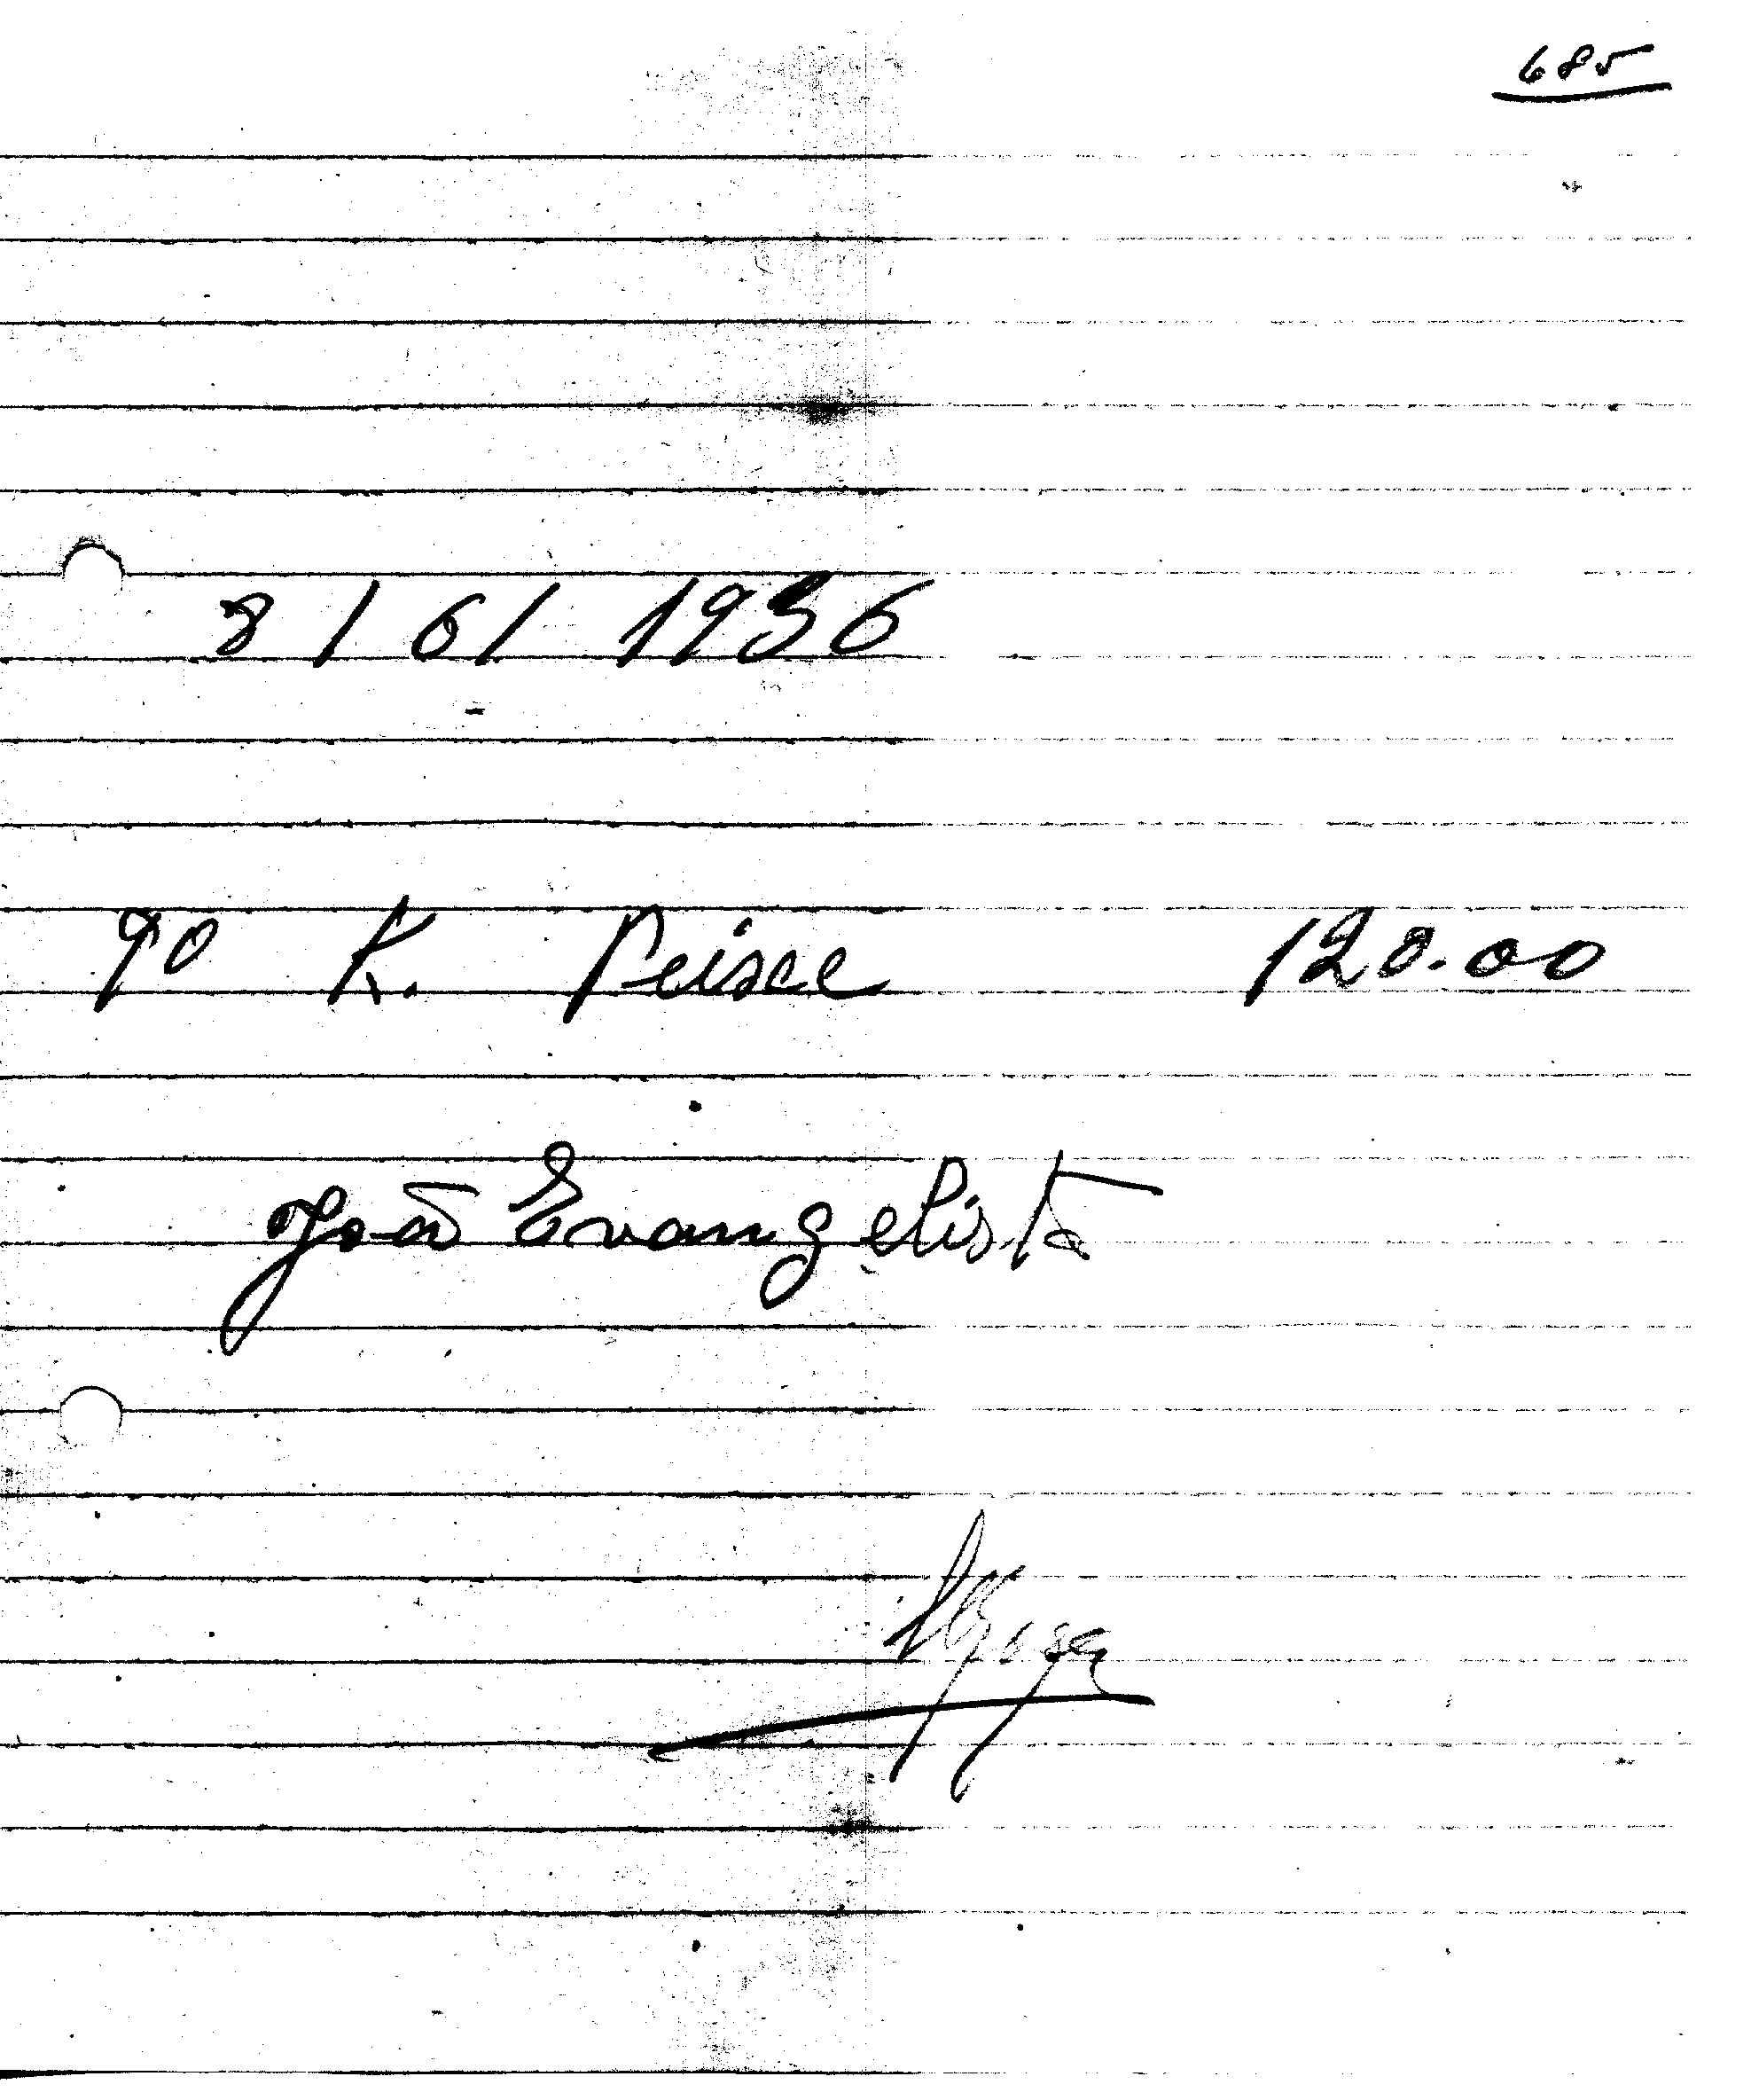 685
8/6/1956
90 K. Peisce 120.00
João Evangelista